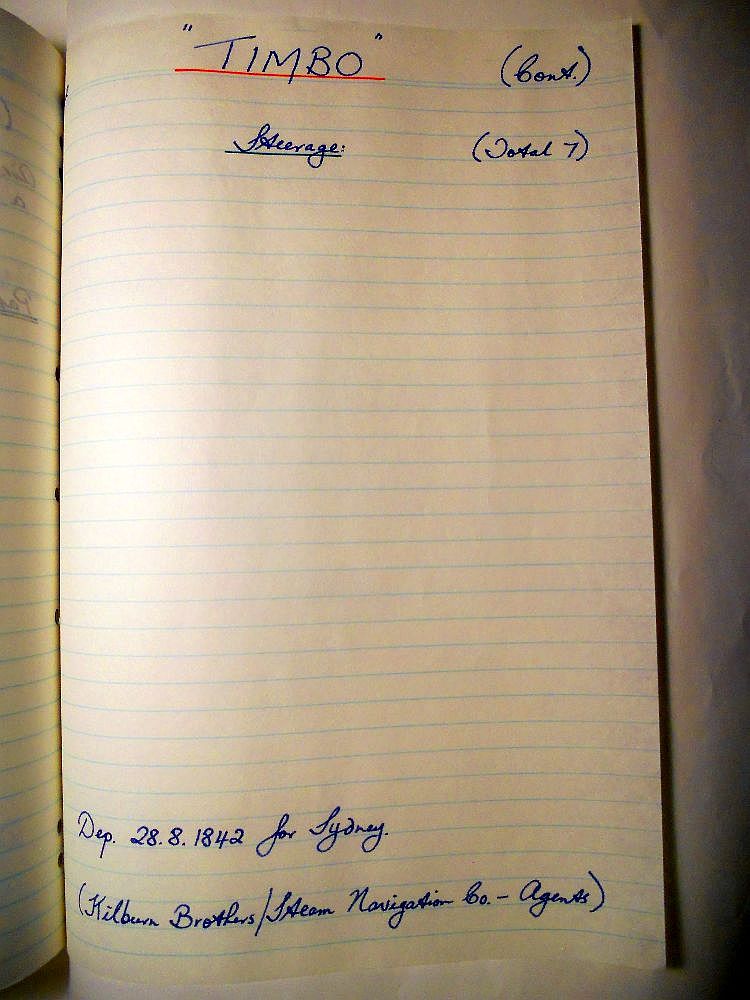 "TIMBO" (Cont.)
Steerage: (Total 7)
Dep. 28.8.1842 for Sydney.
(Kilburn Brothers/Steam Navigation Co. - Agents)